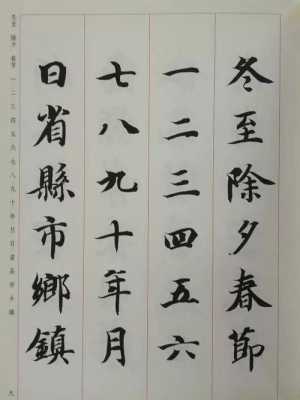 冬至除夕春節
一二三四五六
七八九十年月
日省縣市鄉鎮
冬至 除夕 春節 一二三四五六七八九十年月日省縣市鄉鎮
九